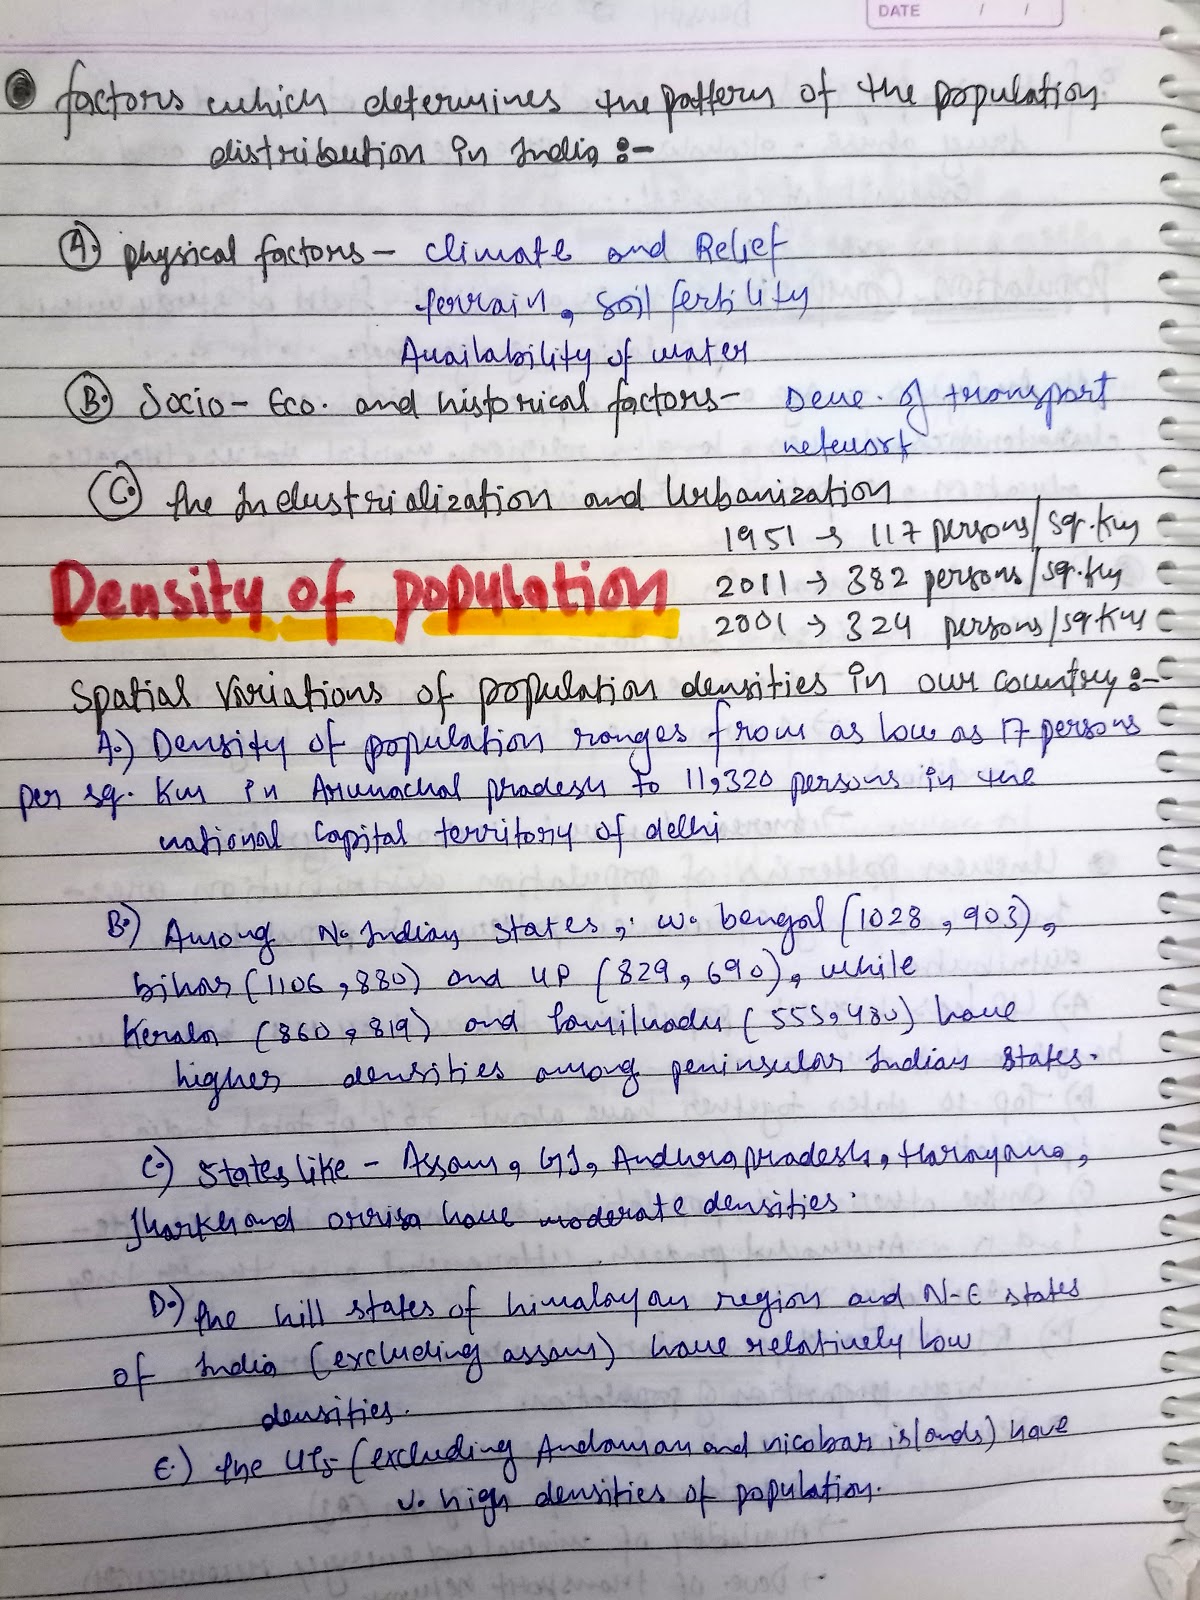 DATE / /
factors which determines the pattern of the population
distribution in India :-
A. physical factors - climate and Relief
terrain, soil fertility
Availability of water
B. Socio-Eco. and historical factors - Deve. of transport
network
C. the Industrialization and Urbanization
1951 → 117 persons/sq.km
Density of population 2011 → 382 persons/sq.km
2001 → 324 persons/sqkm
Spatial Variations of population densities in our country :-
A.) Density of population ranges from as low as 17 persons
per sq. km in Arunachal pradesh to 11,320 persons in the
national capital territory of delhi
B.) Among N. Indian states, w. bengal (1028, 903),
bihar (1106, 880) and UP (829, 690), while
Kerala (860, 819) and tamilnadu (555, 480) have
higher densities among peninsular Indian states.
C.) states like - Assam, GJ, Andhra pradesh, Harayana,
Jharkhand and orrisa have moderate densities.
D.) the hill states of himalayan region and N-E states
of India (excluding assam) have relatively low
densities.
E.) the UTs (excluding Andaman and nicobar islands) have
v. high densities of population.